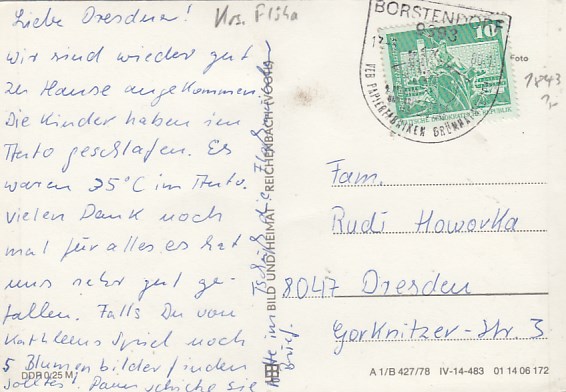 Liebe Dresdner!
Krs. Flöha
wir sind wieder gut
zu Hause angekommen.
Die Kinder haben im
Auto geschlafen. Es
waren 35°C im Auto.
vielen Dank noch
mal für alles es hat
uns sehr gut ge-
fallen. Falls Du von
Kathleens Spiel noch
5 Blumenbilder finden
solltest. Dann schicke sie
bitte im
Brief.
Tschüß die
BILD UND HEIMAT REICHENBACH (VOGTL)
DDR 0/25 M
BORSTENDORF
9393
VEB PAPIERFABRIKEN GRÜNHAI
10
DEUTSCHE DEMOKRATISCHE REPUBLIK
Foto
1843
Fam.
Rudi Howorka
8047 Dresden
Gorknitzer-Str. 3
A 1/B 427/78 IV-14-483 01 14 06 172